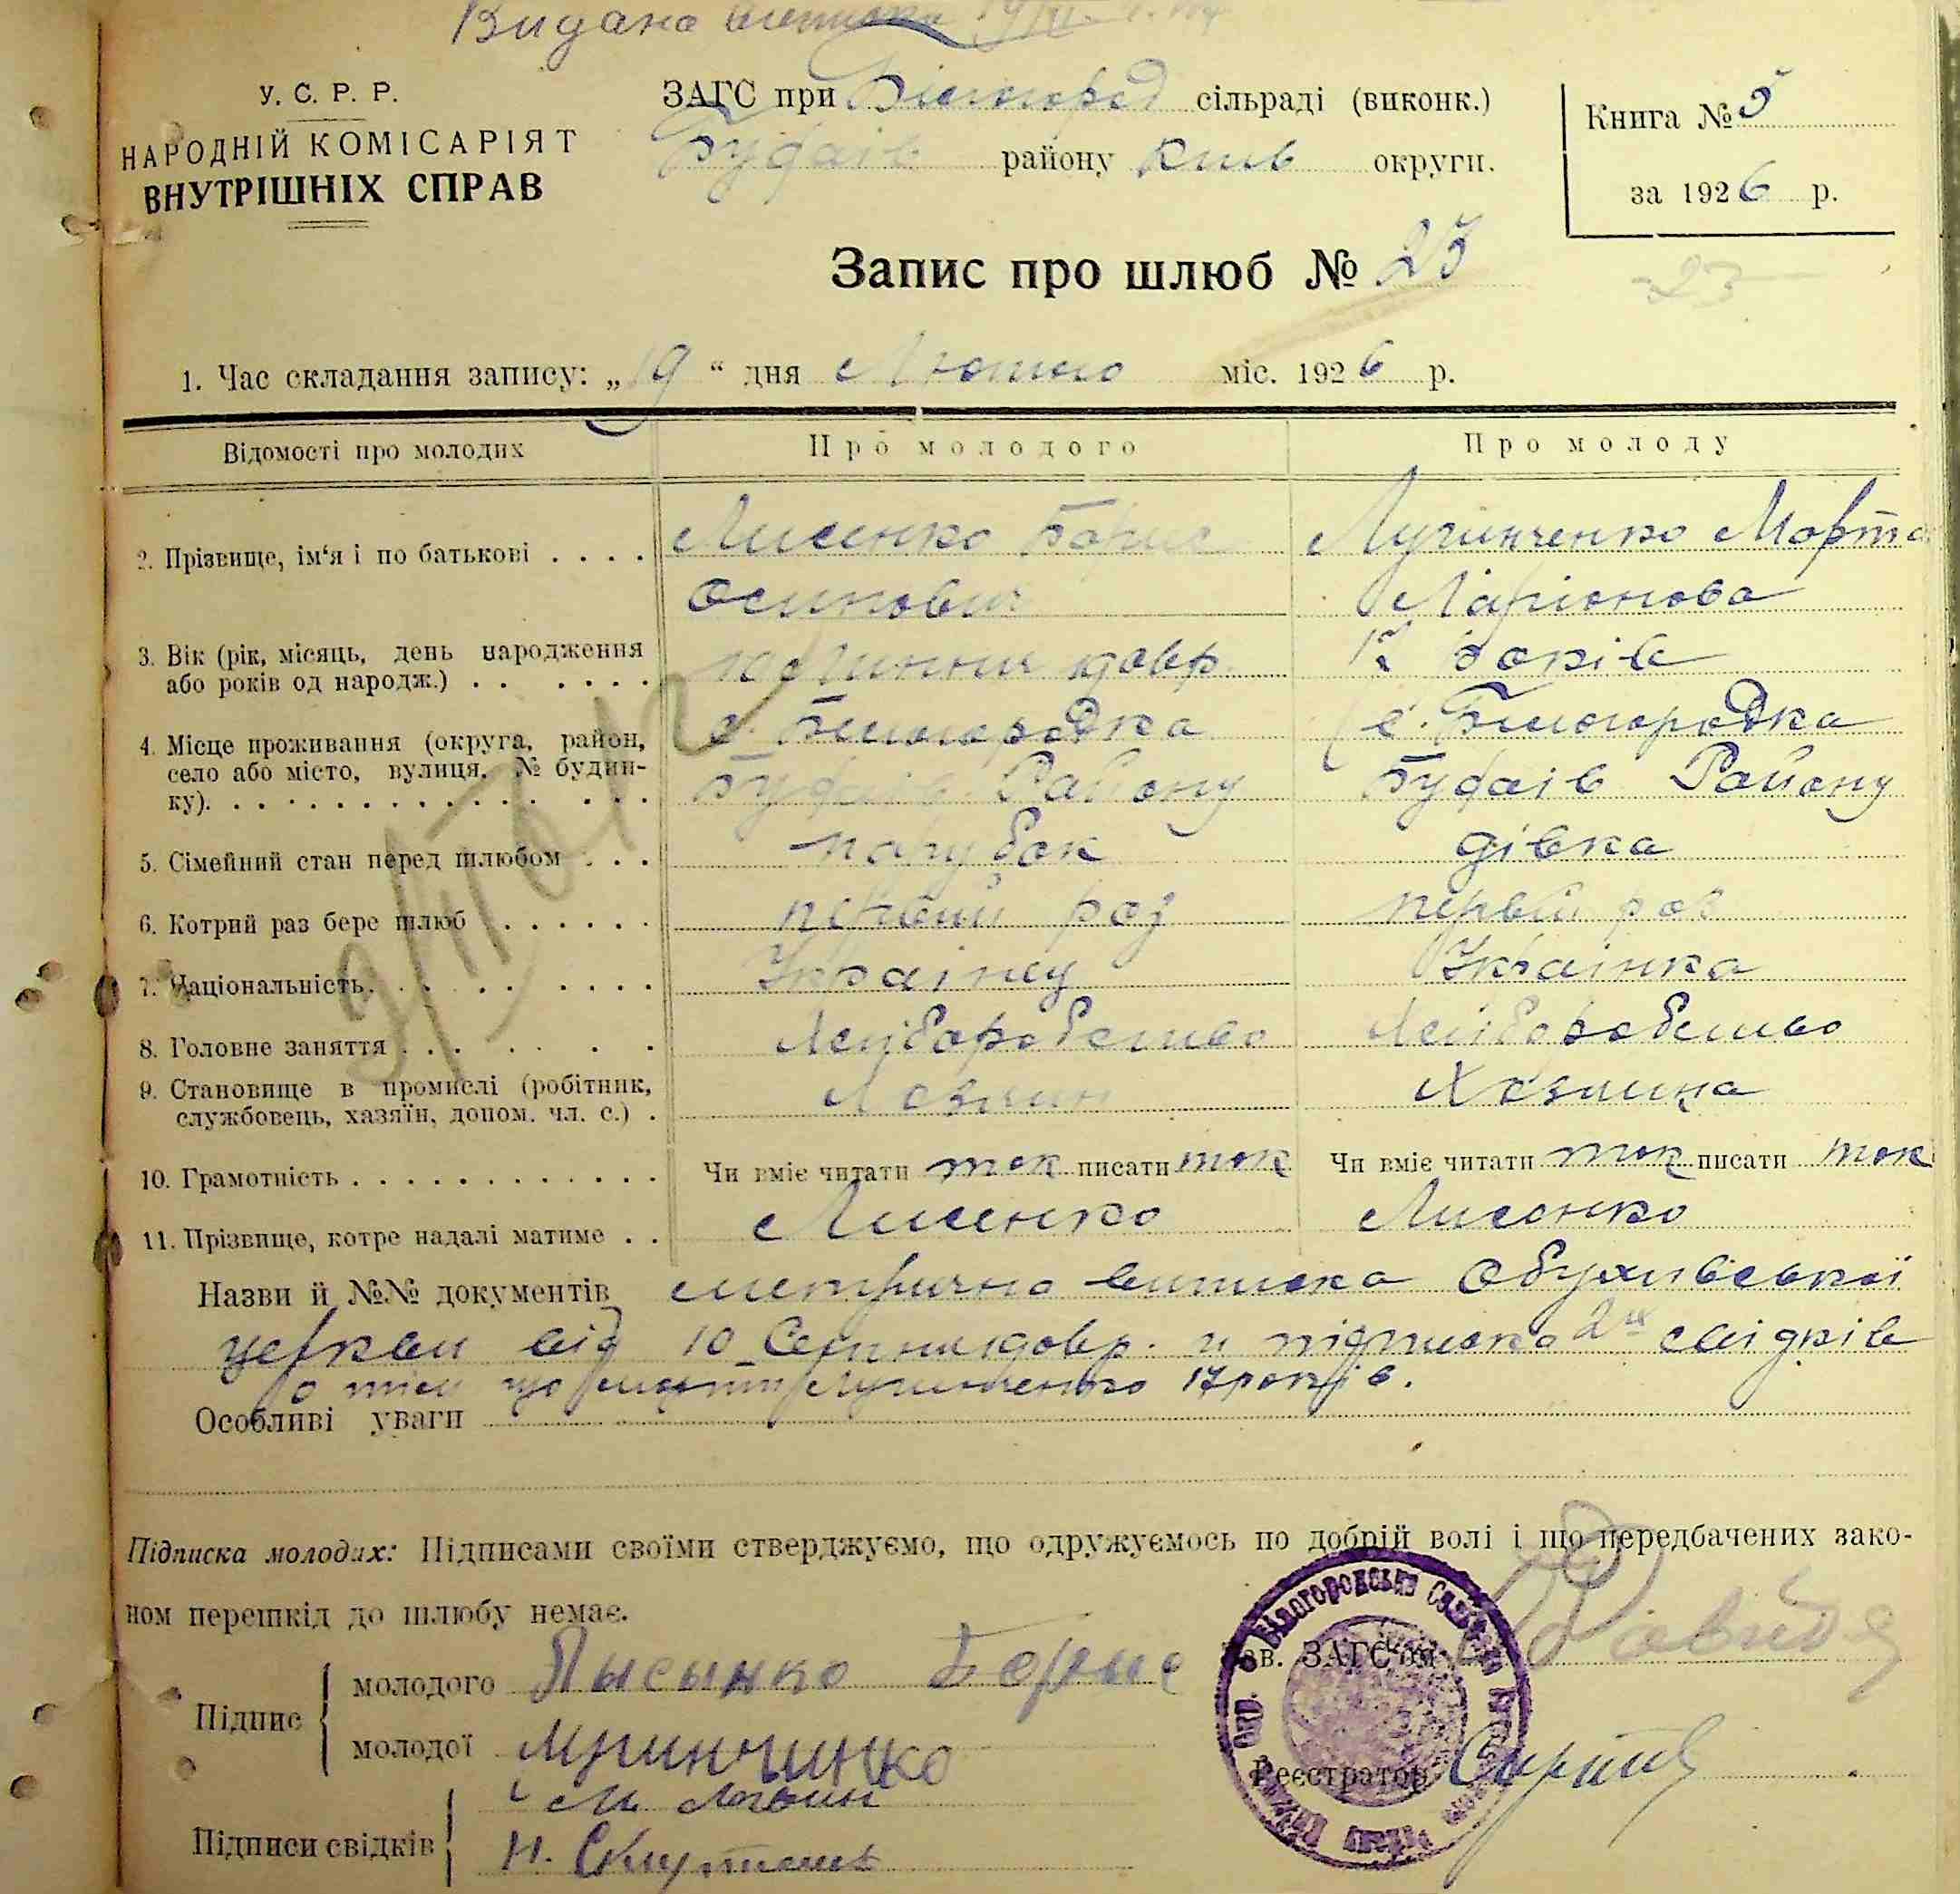 Видана
У. С. Р. Р.
НАРОДНІЙ КОМІСАРІЯТ
ВНУТРІШНІХ СПРАВ
ЗАГС при Білогород сільраді (виконк.)
Будаів району Київ округи.
Книга № 5
за 1926 р.
Запис про шлюб № 23
23
1. Час складання запису: „19“ дня Лютого міс. 1926 р.
Відомості про молодих Про молодого Про молоду
2. Прізвище, ім'я і по батькові . . . . Лисенко Борис Лугинченко Морта
Осипович Ларіонова
3. Вік (рік, місяць, день народження 17 років
або років од народж.) . . . . . .
4. Місце проживання (округа, район, с. Білогородка с. Білогородка
село або місто, вулиця, № будин- Будаів Району Будаів Району
ку). . . . . . . . . . . . . . .
5. Сімейний стан перед шлюбом . . . парубок дівка
6. Котрий раз бере шлюб . . . . . . первий раз первій раз
7. Національність. . . . . . . . . Украінец Украінка
8. Головне заняття . . . . . . . Хліборобство Хліборобство
9. Становище в промислі (робітник, Хозяин Хозяина
службовець, хазяїн, допом. чл. с.) .
10. Грамотність . . . . . . . . . . . . . Чи вміє читати так писати так Чи вміє читати так писати так
11. Прізвище, котре надалі матиме . . Лисенко Лисенко
Назви й №№ документів метрична виписка Обухивської
церкви від 10 и підписка 2х свідків
о тім що 17 років.
Особливі уваги
Підписка молодих: Підписами своїми стверджуємо, що одружуємось по добрій волі і що передбачених зако-
ном перешкід до шлюбу немає.
Підпис
молодого Лысынко Борыс
молодої
Підписи свідків
Зв. ЗАГС'ом
Реєстратор